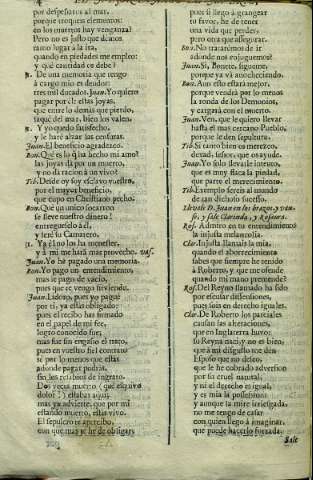 4
por despesorar al mar.
porque troquen elementos:
en los muertos hay venganza?
Pero no es justo que demos
tanto lugar a la ira,
quando en piedades me empleo:
y què cantidad os debe?
De una memoria que tengo
à cargo mio es deudor:
tres mil ducados. Juan. Yo quiero
pagar por èl: estas joyas,
que entre lo demàs que pierdo,
saquè del mar, bien los valen.
Y yo quedo satisfecho,
y le harè alzar las censuras.
Juan. El beneficio agradezco.
Bon. Què es lo que ha hecho mi amo?
las joyas dà por un muerto,
y no dà racion à un vivo?
Tib. Desde oy soy esclavo vuestro,
por el mayor beneficio,
que cupo en Christiano pecho.
Bon. Què un unico Socarron
se lleve nuestro dinero!
entreguèselo à èl,
y serè su Camarero.
Ya èl no los ha menester,
y à mi me harà mas provecho. vas.
Juan. Yo he pagado una memoria.
Bon. Yo pago un entendimiento,
mas le pago de vacio,
pues que te vengo sirviendo.
Juan. Lidoro, pues yo paguè
por ti, ya estàs obligado:
pues el recibo has firmado
en el papel de mi fee,
logro conocido fue,
mas fue sin engaño el trato,
pues en vuestro fiel contrato
sè por lo menos que estàs
adonde pagar podràs
sin los resabios de ingrato.
Dos veces muerto
dolor! estabas aqui:
mas ya advierte, que por mi
estando muerto, estàs vivo.
El sepulcro te apercibo,
con que mas te he de obligar,
pues si llego à grangear
tu favor, he de tener
una vida que perder,
pero otra que assegurar.
Bon. No trataremos de ir
adonde nos enjuguemos?
Juan. Si, Bonete, sigueme,
porque ya và anocheciendo.
Bon. Aun esto estarà mejor,
porque vendrà por lo menos
la ronda de los Demonios,
y cargarà con el muerto.
Juan. Ven, que le quiero llevar
hasta el mas cercano Pueblo,
porque le den sepultura.
Tib. Si tanto bien os merezco,
dexad, señor, que os ayude.
Juan. Yo solo llevarle intento,
que es muy flaca la piedad,
que parte el merecimiento.
Tib. Exemplo sereis al mundo
de tan dichoso sucesso.
Llevale D. Juan en los brazos, y vanse,
y sale Clarinda, y Rosaura.
Ros. Admiro en tu entendimiento
la injusta melancolia.
Clar. Injusta llamais la mia,
quando el aborrecimiento
sabes que siempre he tenido
à Roberto, y que me ofende
quando mi mano pretende?
Ros. Del Reyno llamado ha sido
por escusar dissensiones,
pues sois en derecho iguales.
Clar. De Roberto los parciales
causan las alteraciones,
que en Inglaterra huvo;
so Reyna naci, y no es bien;
que à mi disgusto me den
Esposo que no deseo,
que le he cobrado adversion
por su cruel natural,
y ni el derecho es igual,
y es mia la possession:
y aunque la mire arriesgada,
no me tengo de casar
con quien llego à imaginar,
que puede hacerlo forzada.
Sale